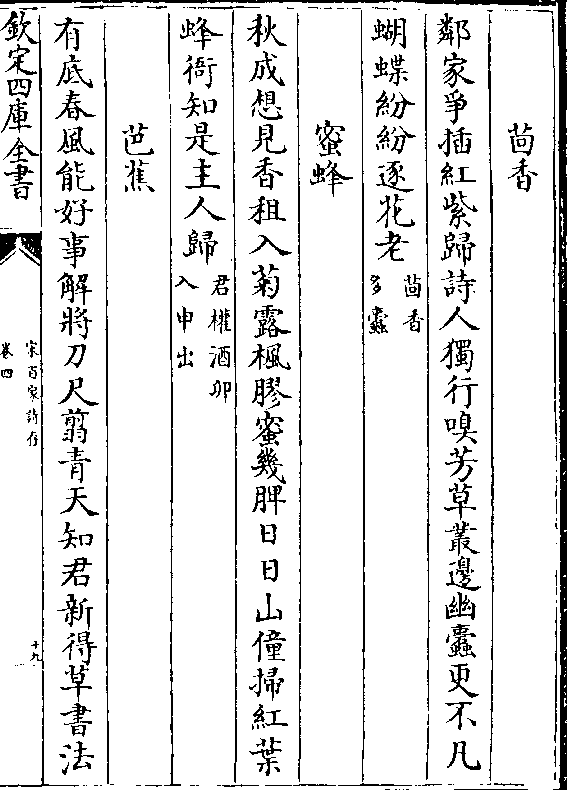 茴香
鄰家爭插紅紫歸詩人獨行嗅芳草叢邊幽蠹更不凡
蝴蝶紛紛逐花老
茴香
多蠹
蜜蜂
秋成想見香租入菊露楓膠蜜幾脾日日山僮掃紅葉
蜂衙知是主人歸
君權酒卯
入申出
芭蕉
有底春風能好事解將刀尺翦青天知君新得草書法
欽定四庫全書
宋百家詩存
卷四
十九